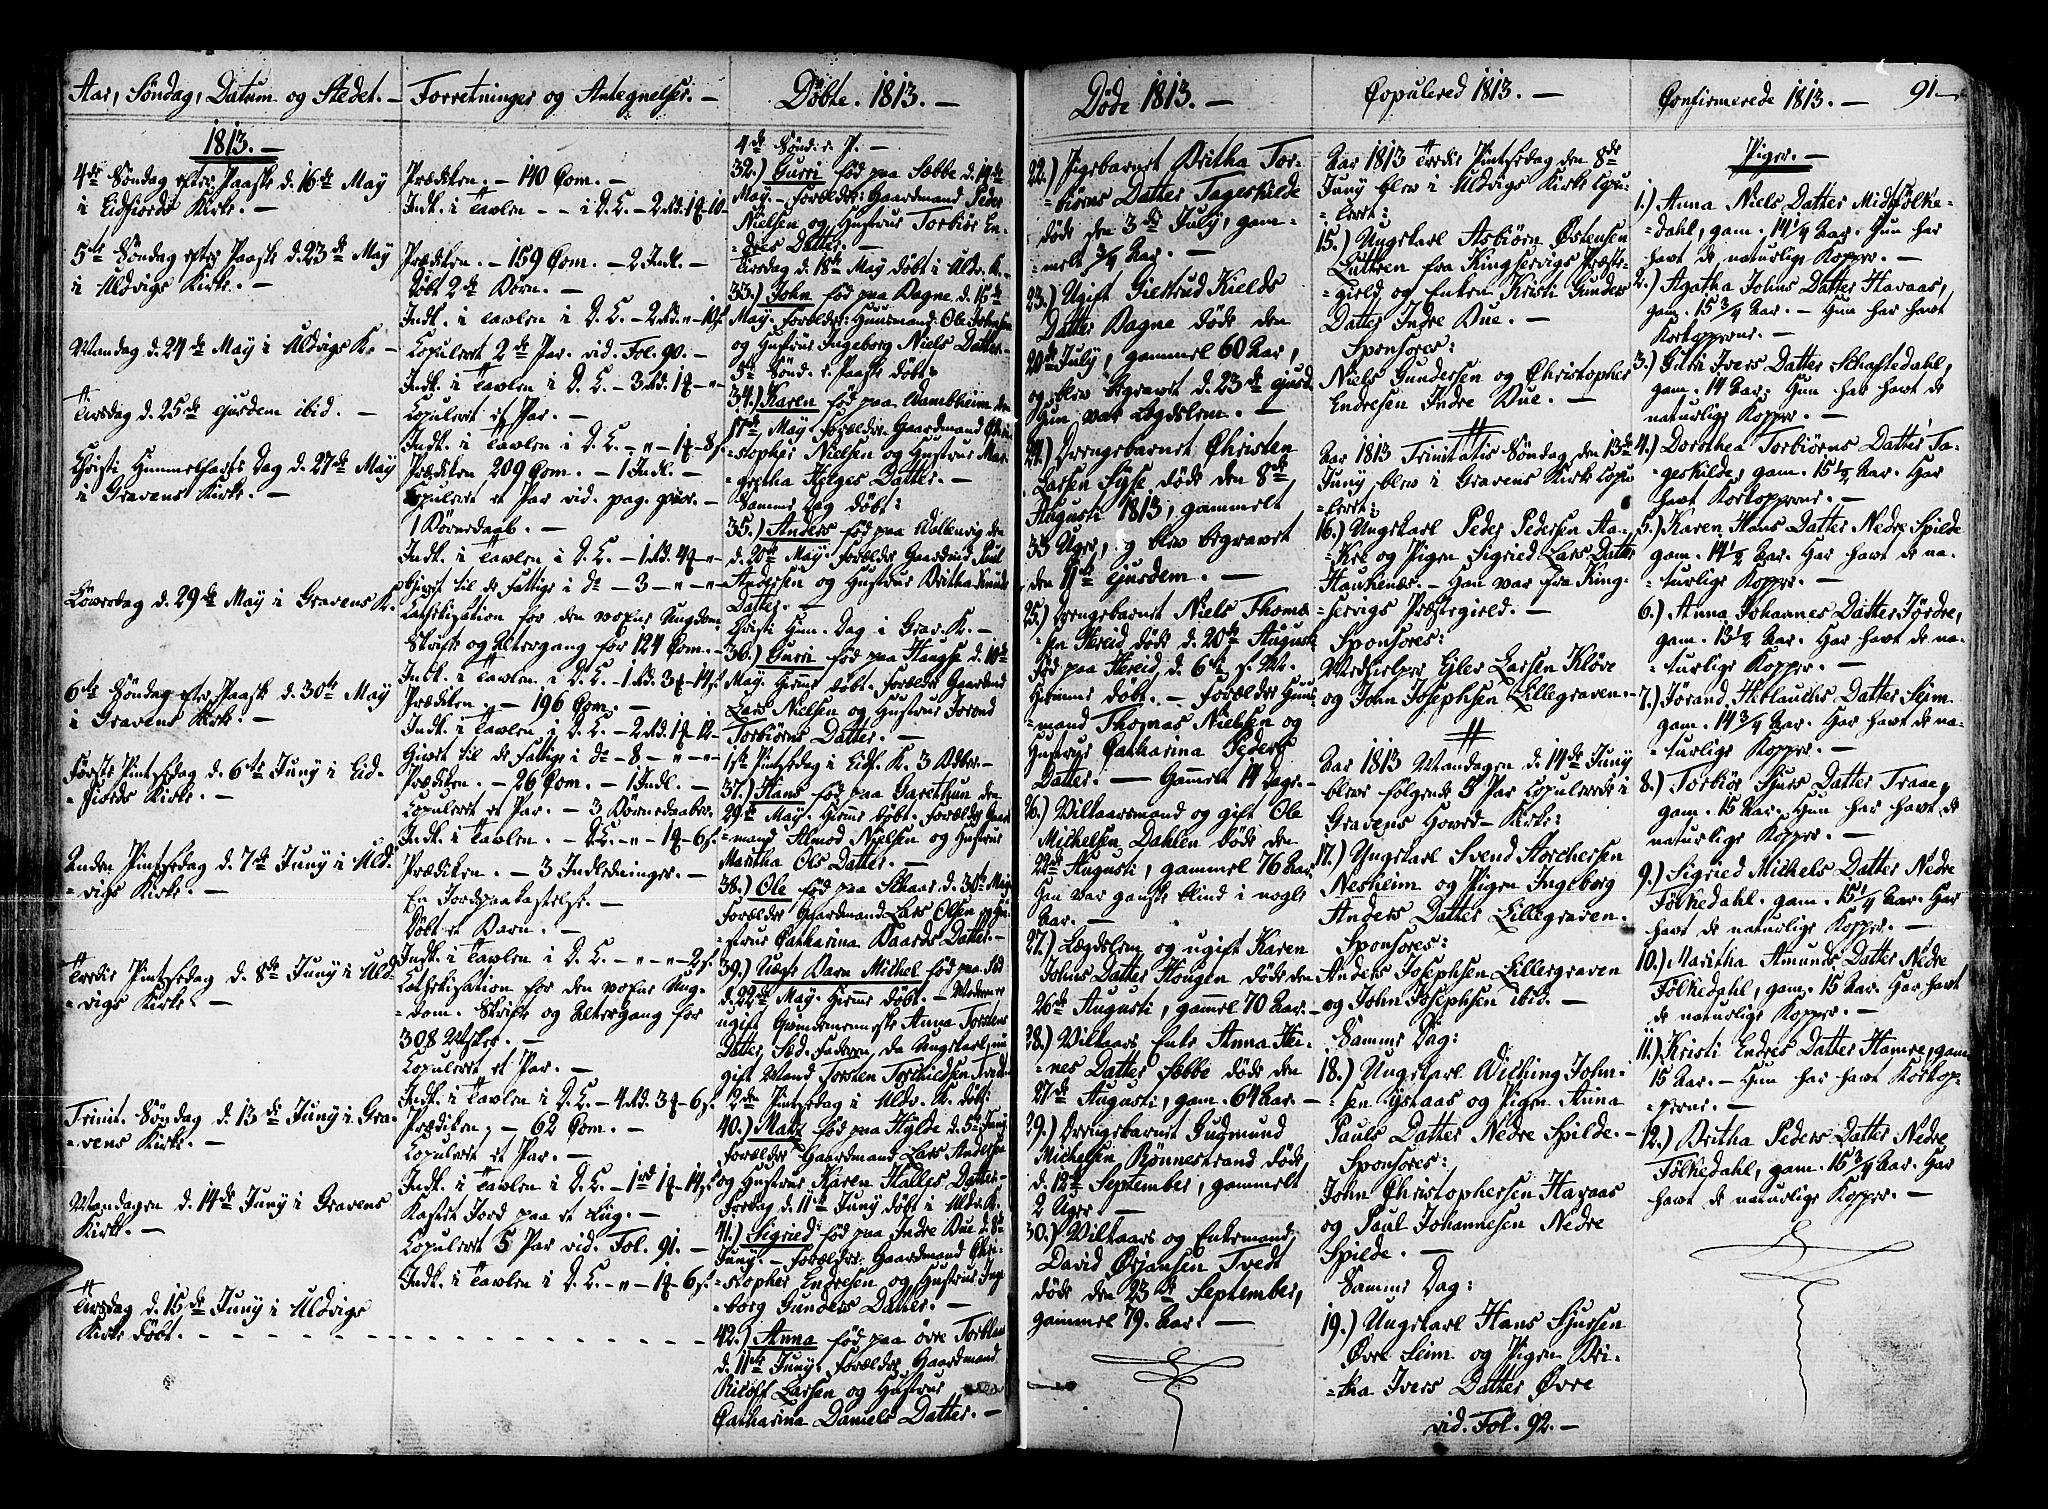 Aar, Söndag, Datum og Stedet. —
1813. —
4de Söndag efter Paaske d. 16de May
i Eidfiords Kirke. —
5te Söndag efter Paaske d. 23de May
i Uldvigs Kirke. —
Mandag d. 24de May i Uldvigs K. —
Tirsdag d. 25de ejusdem ibid. —
Christi Himmelfarts Dag d. 27de May
i Gravens Kirke. —
Löverdag d. 29de May i Gravens K.
6te Söndag efter Paaske d. 30te May
i Gravens Kirke. —
Förste Pintsedag d. 6te Juny i Eid-
=fiords Kirke. —
Anden Pintsedag d. 7de Juny i Uld-
vigs Kirke. —
Tredie Pintsedag d. 8de Juny i Uld-
=vigs Kirke. —
Trinit. Söndag d. 13de Juny i Gra-
=vens Kirke. —
Mandagen d. 14de Juny i Gravens
Kirke. —
Tirsdag d. 15de Juny i Uldvigs
Kirke döbt.
Forretninger og Antegnelser. —
Prædiken. — 140 Com. —
Indk. i Tavlen — - i D. C. — 2Rd. 1f 10 -
Prædiken. — 159 Com. — 2 Indl. —
Döbt 2de Börn. —
Indk. i Tavlen i D. C. — 2Rd. - 12s.
Copuleret 2de Par. vid. Fol. 90. —
Indk. i Tavlen i D. C. — 3Rd. 1f - -
Copuleret et Par. —
Indk. i Tavlen i D. C. - - 1f - 8s.
Prædiken, 209 Com. — 1 Indl. —
Copuleret et Par vid. pag. præc. —
1 Börnedaab. —
Indk. i Tavlen i D. C. — 1Rd. 4f - -
Givet til de Fattige i do — 3 - - -
Cathekisation for den voxne Ungdom.
Skrifte og Altergang for 124 Com. —
Indk. i Tavlen i D. C. — 1Rd. 3f - 14s.
Prædiken. — 196 Com. —
Indk. i Tavlen i D. C. — 2Rd. 1f - 12 -
Givet til de Fattige i do — 8 - - -
Prædiken. — 26 Com. — 1 Indl. —
Copuleret et Par. — 3 Börnedaaber.
Indk. i Tavlen. — D. C. - - 1f - 6s.
Prædiken. — 3 Indledninger. —
En Jordspaakastelse. —
Döbt et Barn. —
Indk. i Tavlen i D. C. - - - 2s.
Cathekisation for den voxne Ung-
=dom. Skrifte og Altergang for
308 Msker. —
Copuleret et Par. —
Indk. i Tavlen i D. C. — 4Rd. 3f - 6s.
Prædiken, — 62 Com. —
Copuleret et Par. —
Indk. i Tavlen i D. C. — 1rd 1f - 14s.
Kastet Jord paa et Liig. —
Copuleret 5 Par vid. Fol. 91. —
Indk. i Tavlen i D. C. - - 1f - 6s.
Döbte. 1813. —
4de Sönd. e. P. —
32.) Gurri föd paa Sæbbe d. 14de
May. — Forældre: Gaardmand Peder
Nielsen og Hustrue Torbiör En-
=dres Datter. —
Tirsdag d. 18de May döbt i Uldv. K. -
33.) John föd paa Bagne d. 15de
May. Forældre: Huusmand: Ole Johnsen
og Hustrue Ingeborg Niels Datter. -
5te Sönd. e. Paaske döbt:
34.) Karen föd paa Vambheim den
17de May Forældre: Gaardmand Chri-
=stopher Nielsen og Hustrue Mar-
gretha Helges Datter. —
Samme Dag döbt:
35.) Anders föd paa Vallevig den
d. 20de May. Forældre Gaardmd. Poul
Andersen og Hustrue Britha Knuds
Datter. —
Christi Him. Dag i Grav. K. —
36.) Gurri föd paa Haugse d. 10de
May. Hiemme döbt. Forældre Gaardmd
Lars Nielsen og Hustrue Jorond
Torbiörns Datter. —
1ste Pintsedag i Eidf. K. 3 Ddber. —
37.) Hans föd paa Garethun den
29de May. Hieme döbt. Forældre Gaard-
=mand Almod Nielsen og Hustrue
Maritha Ols Datter. —
38.) Ole föd paa Skaar d. 30te May
Forældre Gaardmand Lars Olsen og Hu-
=strue Catharina Baards Datter. —
39.) Uægte Barn Michel föd paa Sæd
d. 22de May. Hieme döbt. — Moderen er
ugift Qvindemenneske Anna Torstens
Datter, Sæd. Faderen, da Ungkarl, nu
gift Mand Torsten Torchildsen Tveit
2den Pintsedag i Uldv. K. döbt:
40.) Mats föd paa Hylde d. 5te Juny
Forældre Gaardmand Lars Andersen
og Hustrue Karen Halles Datter.
Fredag d. 11te Juny döbt i Uldv. K.
41.) Sigried föd paa Indre Bue d. 8de
Juny. — Forældre: Gaardmand Chri-
=stopher Endresen og Hustrue Inge-
=borg Gunders Datter. —
42.) Anna föd paa övre Torblaa
d. 11te Juny. Forældre Gaardmand
Rieloff Larsen og Hustrue
Catharina Daniels Datter. —
Döde 1813. —
22.) Pigebarnet Britha Tor-
=biörns Datter Tageskilde
döde den 3de July, gam-
=melt 3/4 Aar. —
23.) Ugift Giertrud Kields
Datter Bagne döde den
20de July, gammel 60 Aar,
og blev begravet d. 23de ejusd.
Hun var Lægdslem. —
24.) Drengebarnet Christen
Larsen Syse, döde den 8de
Augusti 1813, gammelt
33 Uger, og blev begravet
den 11te ejusdem. —
25.) Drengebarnet Niels Thoma
=sen Hereid döde d. 20de Augusti
föd paa Hereid, d. 6te s. M.
Hiemme döbt. — Forældre Huus-
=mand Thomas Nielsen og
Hustrue Catharina Peders
Datter. — Gammel 14 Dage. —
26.) Vilkaarsmand og gift Ole
Michelsen Dahlen döde den
22de Augusti, gammel 76 Aar.
Han var ganske blind i nogle
Aar. —
27.) Lægdslem og ugift Karen
Johns Datter Hougen döde den
26de Augusti, gammel 70 Aar. —
28.) Vilkaars Enke Anna Hei-
=nes Datter Sæbbe döde den
27de Augusti, gam. 64 Aar. —
29.) Drengebarnet Gudmund
Michelsen Rönnestrand döde
d. 12te September, gammelt
2 Uger. —
30.) Vilkaars og Enkemand
David Örjansen Tvedt
döde den 23de September,
gammel 79. Aar. —
Copulered 1813. —
Aar 1813 Tredie Pintsedag den 8de
Juny blev i Uldvigs Kirke Copu-
=leret:
15.) Ungkarl Asbiörn Östensen
Lutteen fra Kingservigs Præste-
=gield og Enken Kristi Gunders
Datter Indre Bue. —
Sponsores:
Niels Gundersen og Christopher
Endresen Indre Bue. —
Aar 1813 Trinitatis Söndag den 13de
Juny blev i Gravens Kirke Copu
=leret:
16.) Ungkarl Peder Pedersen Aa-
=kre og Pigen Sigried Lars Datter
Haukenæs. — Han var fra King-
=servigs Præstegield. —
Sponsores:
Medhielper Ejler Larsen Klöve
og John Josephsen Lillegraven. —
Aar 1813 Mandagen d. 14de Juny
blev fölgende 5 Par Copulerede i
Gravens Hoved-Kirke:
17.) Ungkarl Svend Storchersen
Nesheim og Pigen Ingeborg
Anders Datter Lillegraven.
Sponsores:
Anders Josephsen Lillegraven
og John Josephsen ibid. —
Samme Dag:
18.) Ungkarl Wiching John-
=sen Ystaas og Pigen Anna
Pauls Datter Nedre Spilde. —
Sponsores:
John Christophersen Havaas
og Paul Johannesen Nedre
Spilde. —
Samme Dag:
19.) Ungkarl Hans Sjursen
Övre Seim og Pigen Bri-
=tha Ivers Datter Övre
vid. Fol. 92. —
Confirmerede 1813. —
91. —
Piger. —
1.) Anna Niels Datter MidtFölke-
dahl, gam. 14 1/4 Aar. Hun har
havt de naturlige Kopper. —
2.) Agatha Johns Datter Havaas,
gam. 15 3/4 Aar. — Hun har havt
Korkopperne. —
3.) Guri Ivers Datter Schaftedahl,
gam. 14 Aar. Hun har havt de
naturlige Kopper. —
4.) Dorothea Torbiörns Datter Ta-
=geskilde, gam. 15 1/2 Aar. Har
havt Korkopperne. —
5.) Karen Hans Datter Nedre Spilde
gam. 14 1/2 Aar. Har havt de na-
=turlige Kopper. —
6.) Anna Johannes Datter Jördre,
gam. 15 1/2 Aar. Har havt de na-
=turlige Kopper. —
7.) Jörand Herlauchs Datter Seim
gam. 14 3/4 Aar. Har havt de na-
=turlige Kopper. —
8.) Torbiör Sjurs Datter Traae,
gam. 15 Aar. Hun har havt de
naturlige Kopper. —
9.) Sigried Michels Datter Nedre
Fölkedahl. gam. 15 1/4 Aar. Har
havt de naturlige Kopper. —
10.) Maritha Amunds Datter Nedre
Fölkedahl, gam. 15 Aar. Har havt
de naturlige Kopper. —
11.) Kristi Endres Datter Hamre, gam.
15 Aar. — Hun har havt Korkop-
=perne. —
12.) Britha Peders Datter Nedre
Fölkedahl, gam. 15 3/4 Aar. Har
havt de naturlige Kopper. —